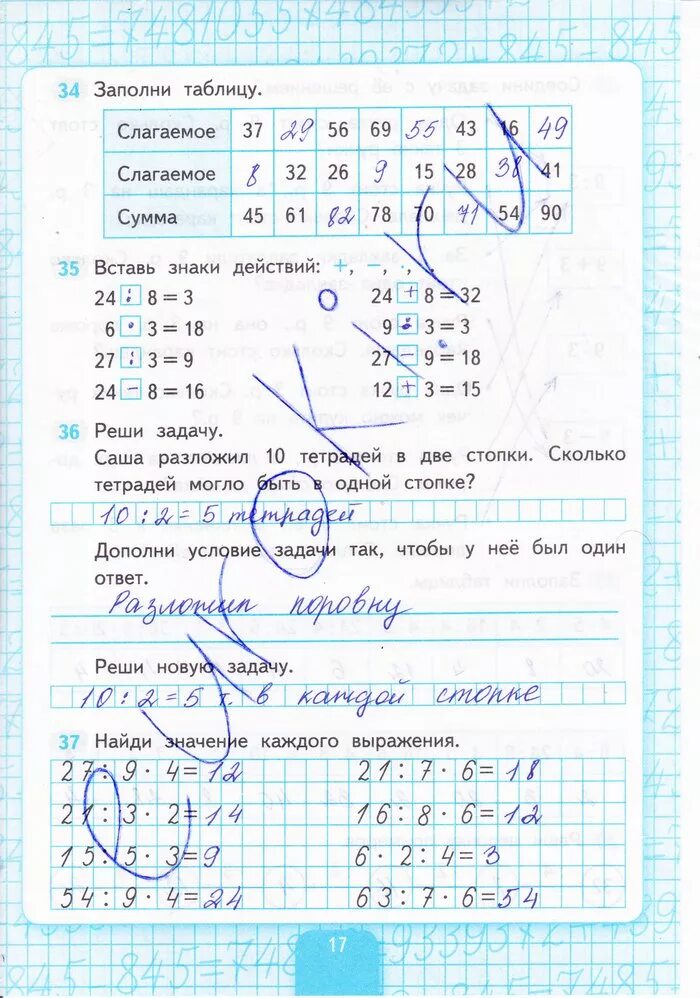 34 Заполни таблицу.
Слагаемое 37 29 56 69 55 43 16 49
Слагаемое 8 32 26 9 15 28 38 41
Сумма 45 61 82 78 70 71 54 90
35 Вставь знаки действий: +, −, ·, :.
24 : 8 = 3 24 + 8 = 32
6 · 3 = 18 9 : 3 = 3
27 : 3 = 9 27 − 9 = 18
24 − 8 = 16 12 + 3 = 15
36 Реши задачу.
Саша разложил 10 тетрадей в две стопки. Сколько
тетрадей могло быть в одной стопке?
10 : 2 = 5 тетрадей
Дополни условие задачи так, чтобы у неё был один
ответ.
Разложил поровну
Реши новую задачу.
10 : 2 = 5 т. в каждой стопке
37 Найди значение каждого выражения.
27 : 9 · 4 = 12 21 : 7 · 6 = 18
21 : 3 · 2 = 14 16 : 8 · 6 = 12
15 : 5 · 3 = 9 6 · 2 : 4 = 3
54 : 9 · 4 = 24 63 : 7 · 6 = 54
17